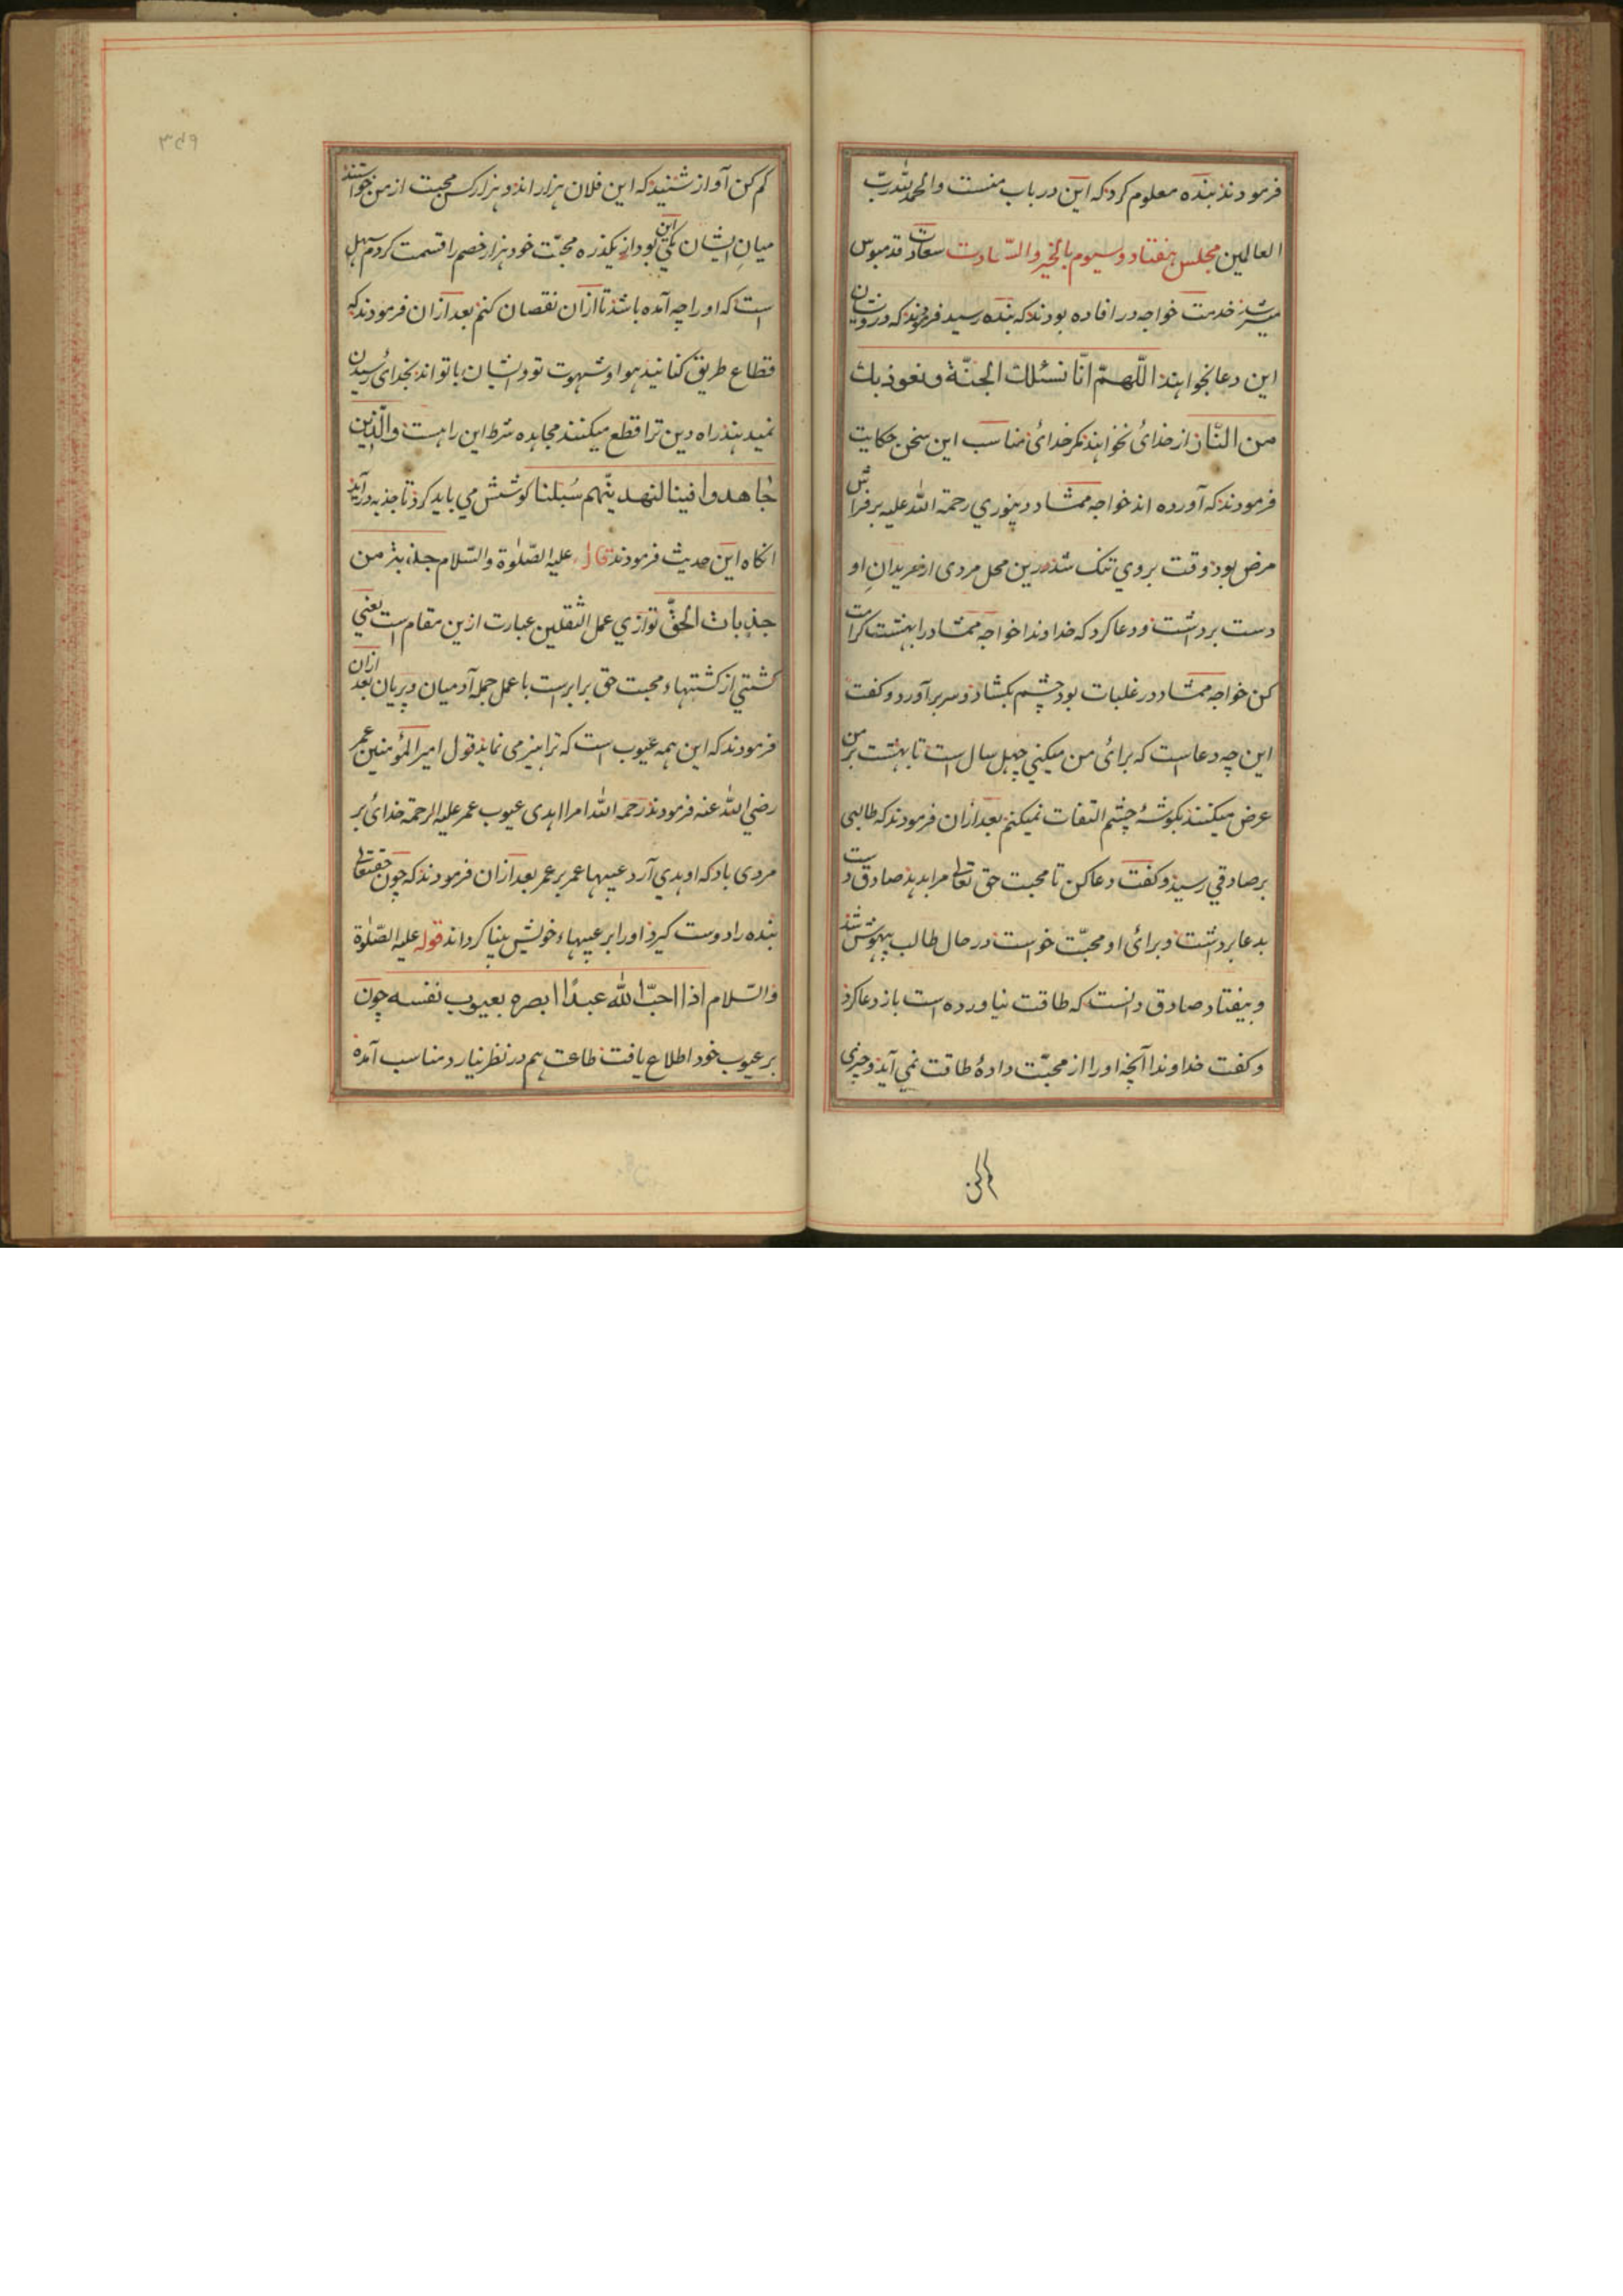 فرمودند بنده معلوم کرد که این در باب منست والحمد لله رب
العالمین مجلس هفتاد و سیوم بالخیر والسعادت سعادت قدمبوس
میسر شد خدمت خواجه در افاده بودند که بنده رسید فرمودند که درویشان
این دعا نخواهند اللّهمّ انّا نسئلك الجنّة ونعوذ بك
من النّار از خدائ نخواهند مگر خدائ مناسب این سخن حکایت
فرمودند که آورده اند خواجه ممشاد دینوري رحمة الله علیه بر فراش
مرض بود وقت بروي تنک شد درین محل مردی از مریدانِ او
دست برداشت و دعا کرد که خداوندا خواجه ممشاد را بهشت کرامت
کن خواجه ممشاد در غلبات بود چشم بکشاد و سر برآورد و کفت
این چه دعاست که برائ من میکني چهل سال است تا بهشت بر من
عرض میکنند بکوشهٔ چشم التفات نمیکنم بعد ازان فرمودند که طالبی
بر صادقي رسید و کفت دعا کن تا محبت حق تعالی مرا بدهد صادق دست
بدعا برداشت و برائ او محبّت خواست در حال طالب بیهوش شد
و بیفتاد صادق دانست که طاقت نیاورده است باز دعا کرد
و کفت خداوندا آنچه او را از محبّت دادهٔ طاقت نمي آید و چیزی
کم کن
کم کن آواز شنید که این فلان هزار اند و هزار کس محبت از من خواستند
میانِ ایشان یکي این بود از یکذره محبّت خود هزار خصم را قسمت کردم سهل
است که او را چه آمده باشد تا ازان نقصان کنم بعد ازان فرمودند که
قطاع طریق کنانید هوا و شهوت تو و ایشان با تواند بخدای رسیدن
نمیدهند راه دین ترا قطع میکنند مجاهده شرط این راهست والّذین
جاهدوا فینا لنهدینّهم سُبلنا کوشش مي باید کرد تا جذبه درآید
انکاه این حدیث فرمودند قال علیه الصّلوة والسّلام جذبة من
جذبات الحقّ توازي عمل الثقلین عبارت ازین مقام است یعني
کشتي از کشتهاء محبت حق برابرست با عمل جمله آدمیان و پریان بعد ازان
فرمودند که این همه عیوب است که ترا هنر می نماید قول امیر المؤمنین عمر
رضي الله عنه فرمودند رحمه الله امرا اهدی عیوب عمر علیه الرحمة خدائ بر
مردی باد که او هدي آرد عیبها عمر بر عمر بعد ازان فرمودند که چون حقتعالی
بنده را دوست کیرد او را بر عیبهاء خویش بینا کرداند قوله علیه الصّلوة
والسّلام اذا احبّ الله عبدًا ابصره بعیوب نفسه چون
بر عیوب خود اطلاع یافت طاعت هم در نظر نیارد مناسب آمده